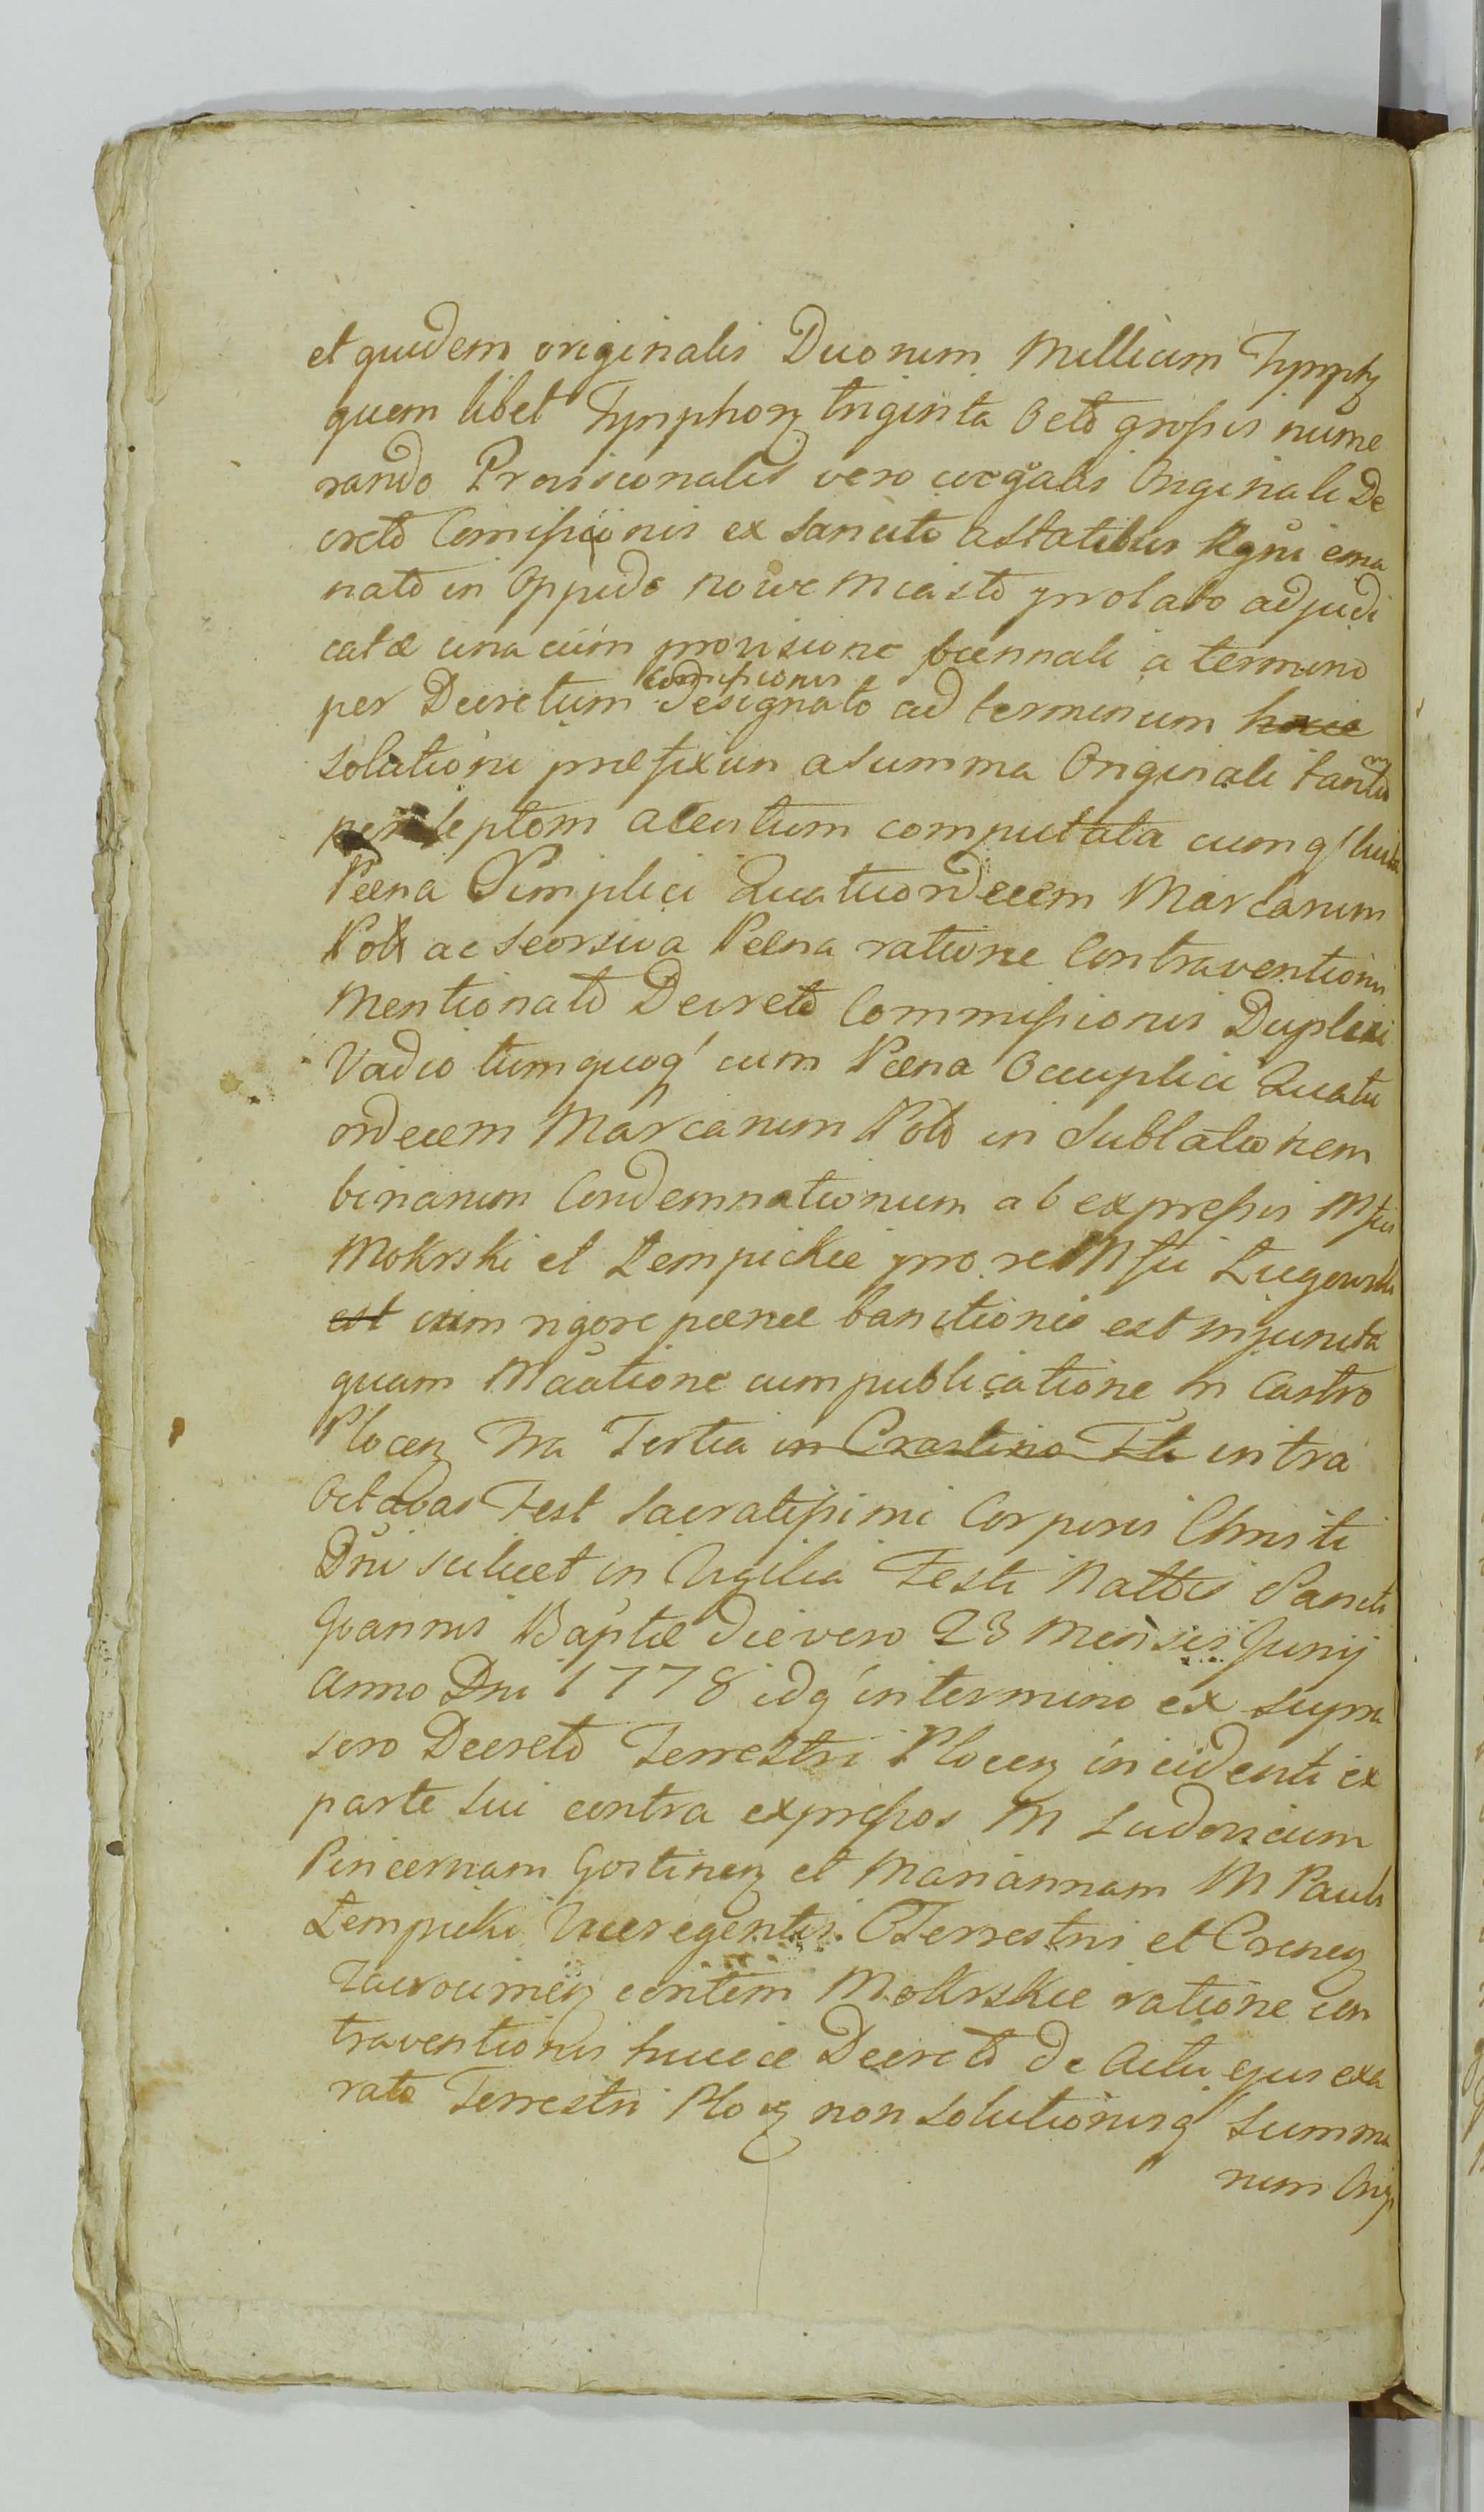 et quidem originalis Duorum Millium Tymph
quem libet Tymphoꝝ triginta Octo grossis nume
rando Provisionalis vero Originali De
creto Comissionis ex sancito a Statibus Rgni ema
nato in Oppido Nowe Miasto prolato adjudi
catæ una cum provisione biennali a termino
per Decretum Comissionis designato ad terminum
solutioni præfixum a summa Originali tantum
per septem a Centum computata cum
Pæna Simplici Quatuordecem Marcarum
Pol ac seorsiva Pæna ratione Contraventionis
Mentionato Decreto Commissionis Duplexi
Vadio tum quoq cum Pæna Occuplici Quatu
ordecem Marcarum Pol in Sublationem
binarum Condemnationum ab expressis Mfcis
Mokrski et Łempickie pro re Mfci Ługowski
est cum rigore pænæ banitionis est injuncta
quam Mãtione cum publicatione in Castro
Plocen Fra Tertia in Crastino Fti intra
Octavas Fest Sacratissimi Corporis Christi
Dni scilicet in Vigilia Festi Nattis Sancti
Joannis Baptæ die vero 23 Mensis Junij
Anno Dni 1778 idq in termino ex supra
sero Decreto Terrestri Plocen incidenti ex
parte sui contra expressos M Ludovicum
Pincernam Gostinen et Mariannam M Pauli
Łempicki Viceregentis Terrestris et Crenen
Zawrocimen contem Mokrskie ratione con
traventionis huicce Decreto de Actu ejus exa
rato Terrestri Ploc non solutionisq Summa
rum Orig